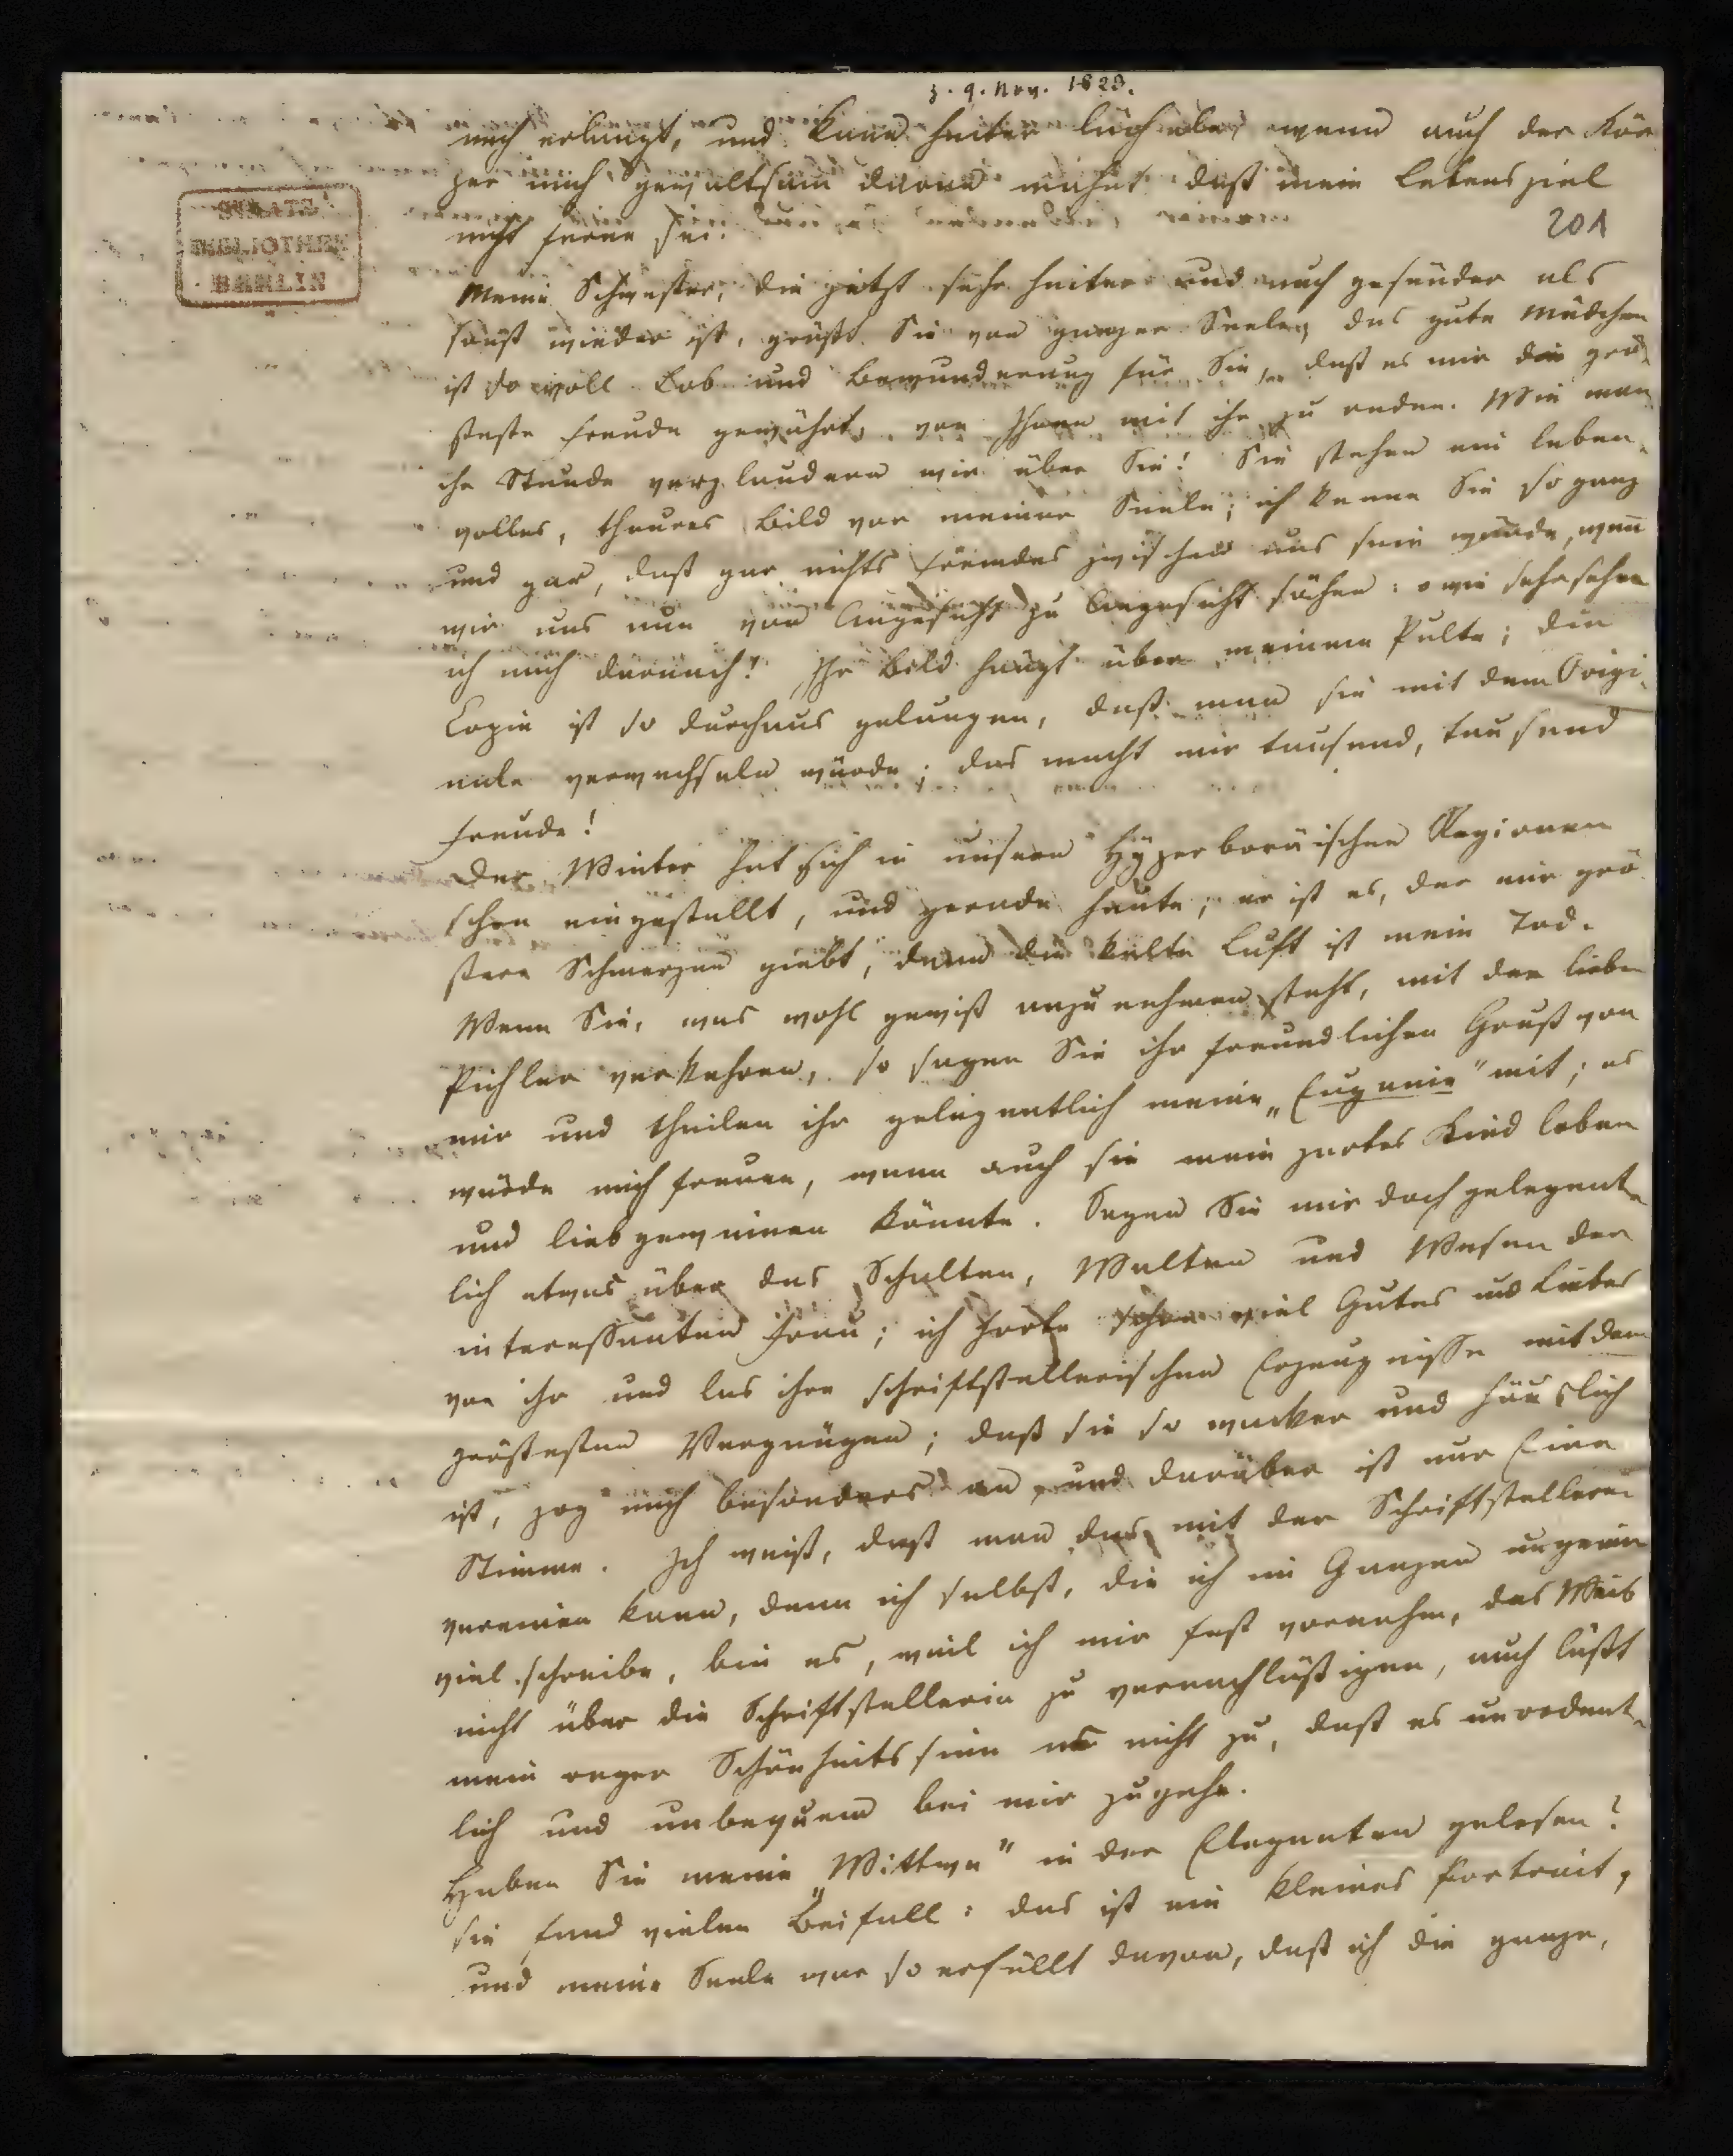 z. 9. Nov. 1823.
mich erlangt, und kann heiter lächeln, wenn auch der Kör
per mich gewaltsam daran mahnt daß mein Lebensziel
nicht ferne sei.
201
STAATS
BIBLIOTHEK
BERLIN
Meine Schwester, die jetzt sehr heiter und auch gesünder als
sonst wieder ist, grüßt Sie von ganzer Seele, das gute Mädchen
ist so voll Lob und Bewunderung für Sie, daß es mir die grö
steste Freude gewährt, von Ihnen mit ihr zu reden. Wie man
che Stunde verplaudern wir über Sie! Sie stehen ein leben
volles, theures Bild vor meiner Seele; ich kenne Sie so ganz
und gar, daß gar nichts fremdes zwischen uns sein würde, wenn
wir uns nun von Angesicht zu Angesicht sähen: o wie sehr sehne
ich mich darnach! Ihr Bild hängt über meinem Pulte; die
Copie ist so durchaus gelungen, daß man sie mit dem Origi
nale verwechseln würde; das macht mir tausend, tausend
Freude!
Der Winter hat sich in unsern Hyperboräischen Regionen
schon eingestellt, und gerade heute; er ist es, der mir grö
ßere Schmerzen giebt, denn die kalte Luft ist mein Tod.
Wenn Sie, was wohl gewiß anzunehmen steht, mit der lieben
Pichler verkehren, so sagen Sie ihr freundlichen Gruß von
mir und theilen ihr gelegentlich meine „Eugenie" mit; es
würde mich freuen, wenn auch sie mein zartes Kind loben
und liebgewinnen könnte. Sagen Sie mir doch gelegent
lich etwas über das Schalten, Walten und Wesen der
interessanten Frau; ich hörte schon viel Gutes und Liebes
von ihr und las ihre schriftstellerischen Erzeugnisse mit dem
größesten Vergnügen; daß sie so wacker und häuslich
ist, zog mich besonders an, und darüber ist nur Eine
Stimme. Ich weiß, daß man das mit der Schriftstellerei
vereinen kann, denn ich selbst, die ich im Ganzen ungemein
viel schreibe, bin es, weil ich mir fest vornahm, das Weib
nicht über die Schriftstellerin zu vernachläßigen, auch läßt
mein reger Schönheitssinn es nicht zu, daß es unordent
lich und unbequem bei mir zugehe.
Haben Sie meine „Wittwe" in der Eleganten gelesen?
sie fand vielen Beifall: das ist ein kleines Portrait,
und meine Seele war so erfüllt davon, daß ich die ganze,